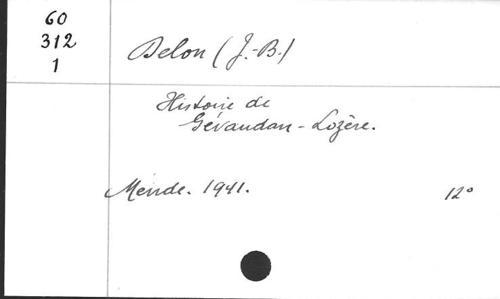 60
312
1
Delon (J.-B.)
Histoire de
Gévaudan - Lozère.
Mende. 1941.
12°